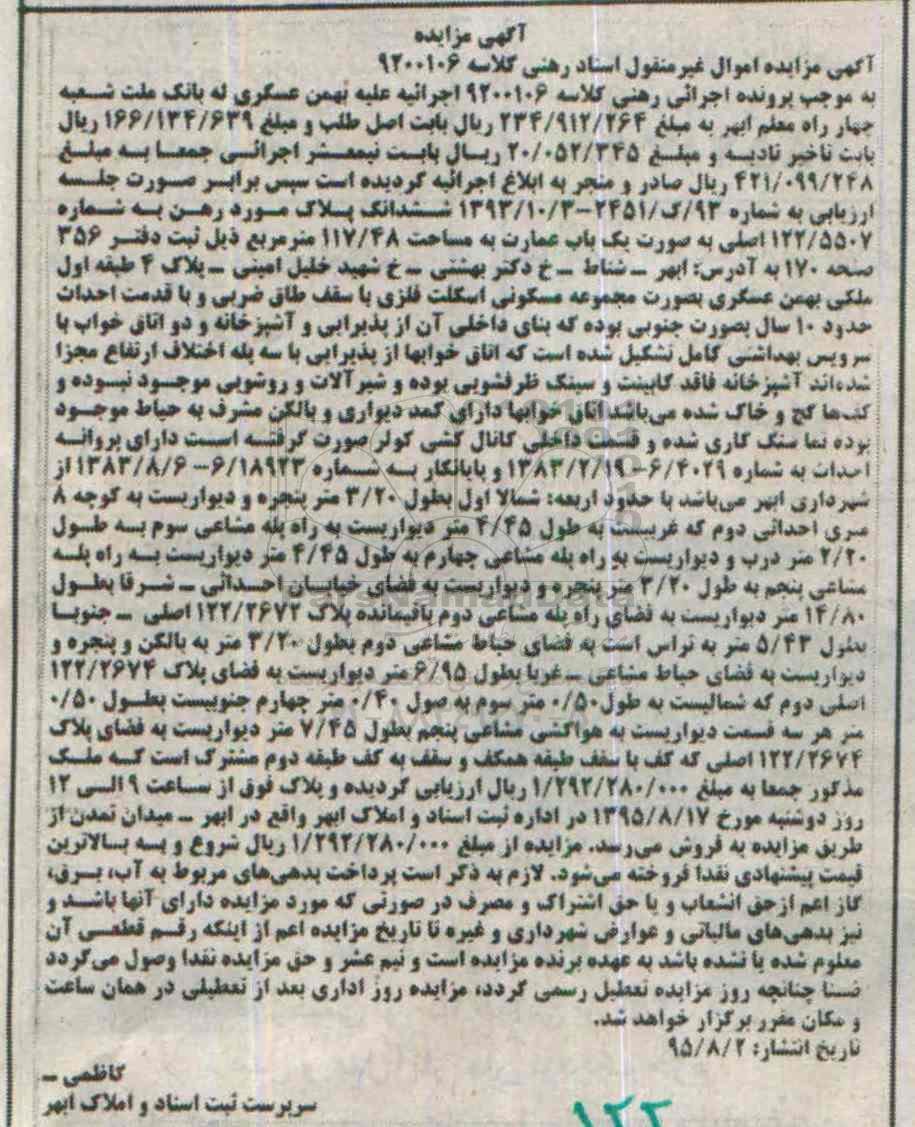 آگهی مزایده
آگهی مزایده اموال غیرمنقول اسناد رهنی کلاسه ۹۲۰۰۱۰۶
به موجب پرونده اجرائی رهنی کلاسه ۹۲۰۰۱۰۶ اجرائیه علیه بهمن عسگری له بانک ملت شعبه
چهار راه معلم ابهر به مبلغ ۲۳۴/۹۱۲/۲۶۴ ریال بابت اصل طلب و مبلغ ۱۶۶/۱۳۴/۶۳۹ ریال
بابت تاخیر تادیه و مبلغ ۲۰/۰۵۲/۳۴۵ ریال بابت نیمعشر اجرائی جمعا به مبلغ
۴۲۱/۰۹۹/۲۴۸ ریال صادر و منجر به ابلاغ اجرائیه گردیده است سپس برابر صورت جلسه
ارزیابی به شماره ۹۳/ک/۲۴۵۱-۱۳۹۳/۱۰/۳ ششدانگ پلاک مورد رهن به شماره
۱۲۲/۵۵۰۷ اصلی به صورت یک باب عمارت به مساحت ۱۱۷/۴۸ مترمربع ذیل ثبت دفتر ۳۵۶
صفحه ۱۷۰ به آدرس: ابهر ـ شناط ـ خ دکتر بهشتی ـ خ شهید خلیل امینی ـ پلاک ۴ طبقه اول
ملکی بهمن عسگری بصورت مجموعه مسکونی اسکلت فلزی با سقف طاق ضربی و با قدمت احداث
حدود ۱۰ سال بصورت جنوبی بوده که بنای داخلی آن از پذیرایی و آشپزخانه و دو اتاق خواب با
سرویس بهداشتی کامل تشکیل شده است که اتاق خوابها از پذیرایی با سه پله اختلاف ارتفاع مجزا
شده‌اند آشپزخانه فاقد کابینت و سینک ظرفشویی بوده و شیرآلات و روشویی موجود نبوده و
کف‌ها گچ و خاک شده می‌باشد اتاق خوابها دارای کمد دیواری و بالکن مشرف به حیاط موجود
بوده نما سنگ کاری شده و قسمت داخلی کانال کشی کولر صورت گرفته است دارای پروانه
احداث به شماره ۶/۴۰۲۹-۱۳۸۳/۲/۱۹ و پایانکار به شماره ۶/۱۸۹۲۳-۱۳۸۳/۸/۶ از
شهرداری ابهر می‌باشد با حدود اربعه: شمالا اول بطول ۳/۲۰ متر پنجره و دیواریست به کوچه ۸
متری احداثی دوم که غربیست به طول ۴/۴۵ متر دیواریست به راه پله مشاعی سوم به طول
۲/۲۰ متر درب و دیواریست به راه پله مشاعی چهارم به طول ۴/۴۵ متر دیواریست به راه پله
مشاعی پنجم به طول ۳/۲۰ متر پنجره و دیواریست به فضای خیابان احداثی ـ شرقا بطول
۱۴/۸۰ متر دیواریست به فضای راه پله مشاعی دوم باقیمانده پلاک ۱۲۲/۲۶۷۲ اصلی ـ جنوبا
بطول ۵/۴۳ متر به تراس است به فضای حیاط مشاعی دوم بطول ۳/۲۰ متر به بالکن و پنجره و
دیواریست به فضای حیاط مشاعی ـ غربا بطول ۶/۹۵ متر دیواریست به فضای پلاک ۱۲۲/۲۶۷۴
اصلی دوم که شمالیست به طول ۰/۵۰ متر سوم به صول ۰/۴۰ متر چهارم جنوبیست بطول ۰/۵۰
متر هر سه قسمت دیواریست به هواکشی مشاعی پنجم بطول ۷/۴۵ متر دیواریست به فضای پلاک
۱۲۲/۲۶۷۴ اصلی که کف با سقف طبقه همکف و سقف به کف طبقه دوم مشترک است که ملک
مذکور جمعا به مبلغ ۱/۲۹۲/۲۸۰/۰۰۰ ریال ارزیابی گردیده و پلاک فوق از ساعت ۹ الی ۱۲
روز دوشنبه مورخ ۱۳۹۵/۸/۱۷ در اداره ثبت اسناد و املاک ابهر واقع در ابهر ـ میدان تمدن از
طریق مزایده به فروش می‌رسد. مزایده از مبلغ ۱/۲۹۲/۲۸۰/۰۰۰ ریال شروع و به بالاترین
قیمت پیشنهادی نقدا فروخته می‌شود. لازم به ذکر است پرداخت بدهی‌های مربوط به آب، برق،
گاز اعم از حق انشعاب و یا حق اشتراک و مصرف در صورتی که مورد مزایده دارای آنها باشد و
نیز بدهی‌های مالیاتی و عوارض شهرداری و غیره تا تاریخ مزایده اعم از اینکه رقم قطعی آن
معلوم شده یا نشده باشد به عهده برنده مزایده است و نیم عشر و حق مزایده نقدا وصول می‌گردد
ضمنا چنانچه روز مزایده تعطیل رسمی گردد، مزایده روز اداری بعد از تعطیلی در همان ساعت
و مکان مقرر برگزار خواهد شد.
تاریخ انتشار: ۹۵/۸/۲
کاظمی ـ
سرپرست ثبت اسناد و املاک ابهر
۱۲۲